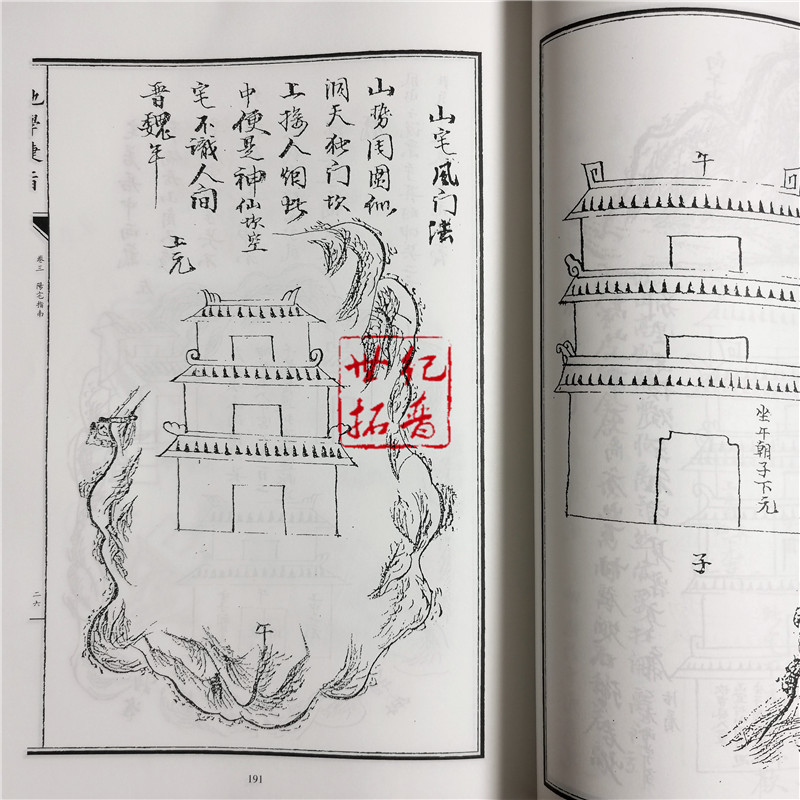 午
坐午朝子下元
子
山宅风门法
山势周圆似
洞天独门坎
上接人烟此
中便是神仙坎空
宅不識人间
晋魏年
上元
午
卷三 陽宅指南
二六
191
世纪
拓普